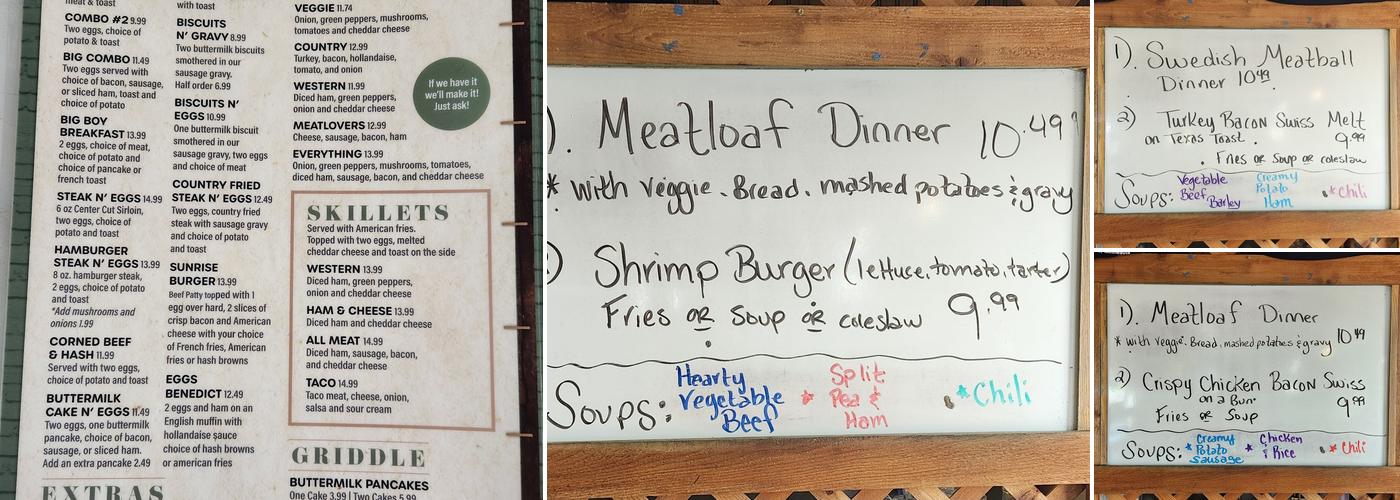 meat & toast
COMBO #2 9.99
Two eggs, choice of
potato & toast
BIG COMBO 11.49
Two eggs served with
choice of bacon, sausage,
or sliced ham, toast and
choice of potato
BIG BOY
BREAKFAST 13.99
2 eggs, choice of meat,
choice of potato and
choice of pancake or
french toast
STEAK N' EGGS 14.99
6 oz Center Cut Sirloin,
two eggs, choice of
potato and toast
HAMBURGER
STEAK N' EGGS 13.99
8 oz. hamburger steak,
2 eggs, choice of potato
and toast
*Add mushrooms and
onions 1.99
CORNED BEEF
& HASH 11.99
Served with two eggs,
choice of potato and toast
BUTTERMILK
CAKE N' EGGS 11.49
Two eggs, one buttermilk
pancake, choice of bacon,
sausage, or sliced ham.
Add an extra pancake 2.49
EXTRAS
with toast
BISCUITS
N' GRAVY 8.99
Two buttermilk biscuits
smothered in our
sausage gravy.
Half order 6.99
BISCUITS N'
EGGS 10.99
One buttermilk biscuit
smothered in our
sausage gravy, two eggs
and choice of meat
COUNTRY FRIED
STEAK N' EGGS 12.49
Two eggs, country fried
steak with sausage gravy
and choice of potato
and toast
SUNRISE
BURGER 13.99
Beef Patty topped with 1
egg over hard, 2 slices of
crisp bacon and American
cheese with your choice
of French fries, American
fries or hash browns
EGGS
BENEDICT 12.49
2 eggs and ham on an
English muffin with
hollandaise sauce
choice of hash browns
or american fries
VEGGIE 11.74
Onion, green peppers, mushrooms,
tomatoes and cheddar cheese
COUNTRY 12.99
Turkey, bacon, hollandaise,
tomato, and onion
WESTERN 11.99
Diced ham, green peppers,
onion and cheddar cheese
MEATLOVERS 12.99
Cheese, sausage, bacon, ham
EVERYTHING 13.99
Onion, green peppers, mushrooms, tomatoes,
diced ham, sausage, bacon, and cheddar cheese
If we have it
we'll make it!
Just ask!
SKILLETS
Served with American fries.
Topped with two eggs, melted
cheddar cheese and toast on the side
WESTERN 13.99
Diced ham, green peppers,
onion and cheddar cheese
HAM & CHEESE 13.99
Diced ham and cheddar cheese
ALL MEAT 14.99
Diced ham, sausage, bacon,
and cheddar cheese
TACO 14.99
Taco meat, cheese, onion,
salsa and sour cream
GRIDDLE
BUTTERMILK PANCAKES
One Cake 3.99 | Two Cakes 5.99
). Meatloaf Dinner 10.49
* with veggie. Bread. mashed potatoes & gravy
) Shrimp Burger (lettuce, tomato, tarter)
Fries OR Soup OR coleslaw 9.99
Soups: Hearty Vegetable Beef * Split Pea & Ham * Chili
1). Swedish Meatball
Dinner 10.49
2) Turkey Bacon Swiss Melt
on Texas Toast. 9.99
. Fries OR Soup OR coleslaw
Soups: Vegetable Beef Barley Creamy Potato Ham * Chili
1). Meatloaf Dinner
* with veggie. Bread, mashed potatoes & gravy 10.49
2) Crispy Chicken Bacon Swiss
on a Bun 9.99
Fries OR Soup
Soups: * Creamy Potato Sausage * Chicken & Rice * Chili